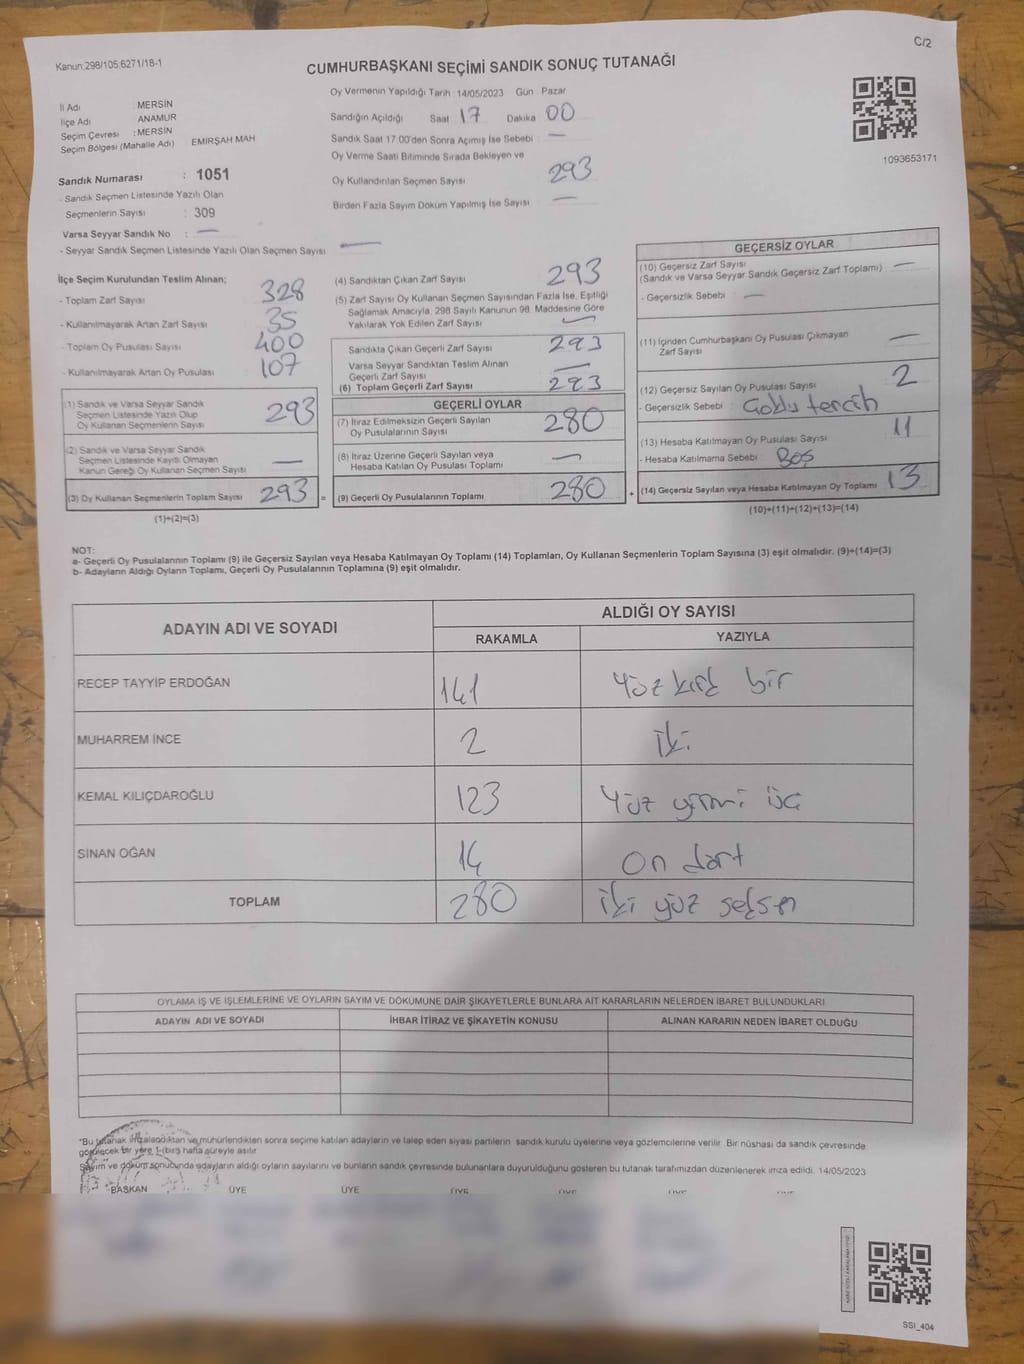 C/2
Kanun:298/105;6271/18-1
CUMHURBAŞKANI SEÇİMİ SANDIK SONUÇ TUTANAĞI
Oy Vermenin Yapıldığı Tarih :14/05/2023 Gün : Pazar
İl Adı : MERSİN
İlçe Adı : ANAMUR
Seçim Çevresi : MERSİN
Seçim Bölgesi (Mahalle Adı) : EMİRŞAH MAH
Sandık Numarası : 1051
- Sandık Seçmen Listesinde Yazılı Olan
Seçmenlerin Sayısı : 309
Varsa Seyyar Sandık No : —
- Seyyar Sandık Seçmen Listesinde Yazılı Olan Seçmen Sayısı : —
Sandığın Açıldığı Saat : 17 Dakika : 00
Sandık Saat 17.00'den Sonra Açılmış İse Sebebi : —
Oy Verme Saati Bitiminde Sırada Bekleyen ve
Oy Kullandırılan Seçmen Sayısı : 293
Birden Fazla Sayım Döküm Yapılmış İse Sayısı : —
1093653171
İlçe Seçim Kurulundan Teslim Alınan;
- Toplam Zarf Sayısı : 328
- Kullanılmayarak Artan Zarf Sayısı : 35
- Toplam Oy Pusulası Sayısı : 400
- Kullanılmayarak Artan Oy Pusulası : 107
(1) Sandık ve Varsa Seyyar Sandık
Seçmen Listesinde Yazılı Olup
Oy Kullanan Seçmenlerin Sayısı 293
(2) Sandık ve Varsa Seyyar Sandık
Seçmen Listesinde Kayıtlı Olmayan
Kanun Gereği Oy Kullanan Seçmen Sayısı —
(3) Oy Kullanan Seçmenlerin Toplam Sayısı 293 =
(1)+(2)=(3)
(4) Sandıktan Çıkan Zarf Sayısı : 293
(5) Zarf Sayısı Oy Kullanan Seçmen Sayısından Fazla İse, Eşitliği
Sağlamak Amacıyla, 298 Sayılı Kanunun 98. Maddesine Göre
Yakılarak Yok Edilen Zarf Sayısı : —
Sandıkta Çıkan Geçerli Zarf Sayısı : 293
Varsa Seyyar Sandıktan Teslim Alınan
Geçerli Zarf Sayısı : —
(6) Toplam Geçerli Zarf Sayısı : 293
GEÇERLİ OYLAR
(7) İtiraz Edilmeksizin Geçerli Sayılan
Oy Pusulalarının Sayısı : 280
(8) İtiraz Üzerine Geçerli Sayılan veya
Hesaba Katılan Oy Pusulası Toplamı : —
(9) Geçerli Oy Pusulalarının Toplamı : 280 +
GEÇERSİZ OYLAR
(10) Geçersiz Zarf Sayısı : —
(Sandık ve Varsa Seyyar Sandık Geçersiz Zarf Toplamı)
- Geçersizlik Sebebi : —
(11) İçinden Cumhurbaşkanı Oy Pusulası Çıkmayan
Zarf Sayısı : —
(12) Geçersiz Sayılan Oy Pusulası Sayısı : 2
- Geçersizlik Sebebi : Çoklu tercih
(13) Hesaba Katılmayan Oy Pusulası Sayısı : 11
- Hesaba Katılmama Sebebi : Boş
(14) Geçersiz Sayılan veya Hesaba Katılmayan Oy Toplamı : 13
(10)+(11)+(12)+(13)=(14)
NOT:
a- Geçerli Oy Pusulalarının Toplamı (9) ile Geçersiz Sayılan veya Hesaba Katılmayan Oy Toplamı (14) Toplamları, Oy Kullanan Seçmenlerin Toplam Sayısına (3) eşit olmalıdır. (9)+(14)=(3)
b- Adayların Aldığı Oyların Toplamı, Geçerli Oy Pusulalarının Toplamına (9) eşit olmalıdır.
ADAYIN ADI VE SOYADI ALDIĞI OY SAYISI
RAKAMLA YAZIYLA
RECEP TAYYİP ERDOĞAN 141 Yüz kırk bir
MUHARREM İNCE 2 iki
KEMAL KILIÇDAROĞLU 123 Yüz yirmi üç
SİNAN OĞAN 14 On dört
TOPLAM 280 iki yüz seksen
OYLAMA İŞ VE İŞLEMLERİNE VE OYLARIN SAYIM VE DÖKÜMÜNE DAİR ŞİKAYETLERLE BUNLARA AİT KARARLARIN NELERDEN İBARET BULUNDUKLARI
ADAYIN ADI VE SOYADI İHBAR İTİRAZ VE ŞİKAYETİN KONUSU ALINAN KARARIN NEDEN İBARET OLDUĞU
*Bu tutanak imzalandıktan ve mühürlendikten sonra seçime katılan adayların ve talep eden siyasi partilerin sandık kurulu üyelerine veya gözlemcilerine verilir. Bir nüshası da sandık çevresinde
görülecek bir yere 1 (bir) hafta süreyle asılır.
Sayım ve döküm sonucunda adayların aldığı oyların sayılarını ve bunların sandık çevresinde bulunanlara duyurulduğunu gösteren bu tutanak tarafımızdan düzenlenerek imza edildi. 14/05/2023
BAŞKAN ÜYE ÜYE ÜYE ÜYE ÜYE ÜYE
SSI_404